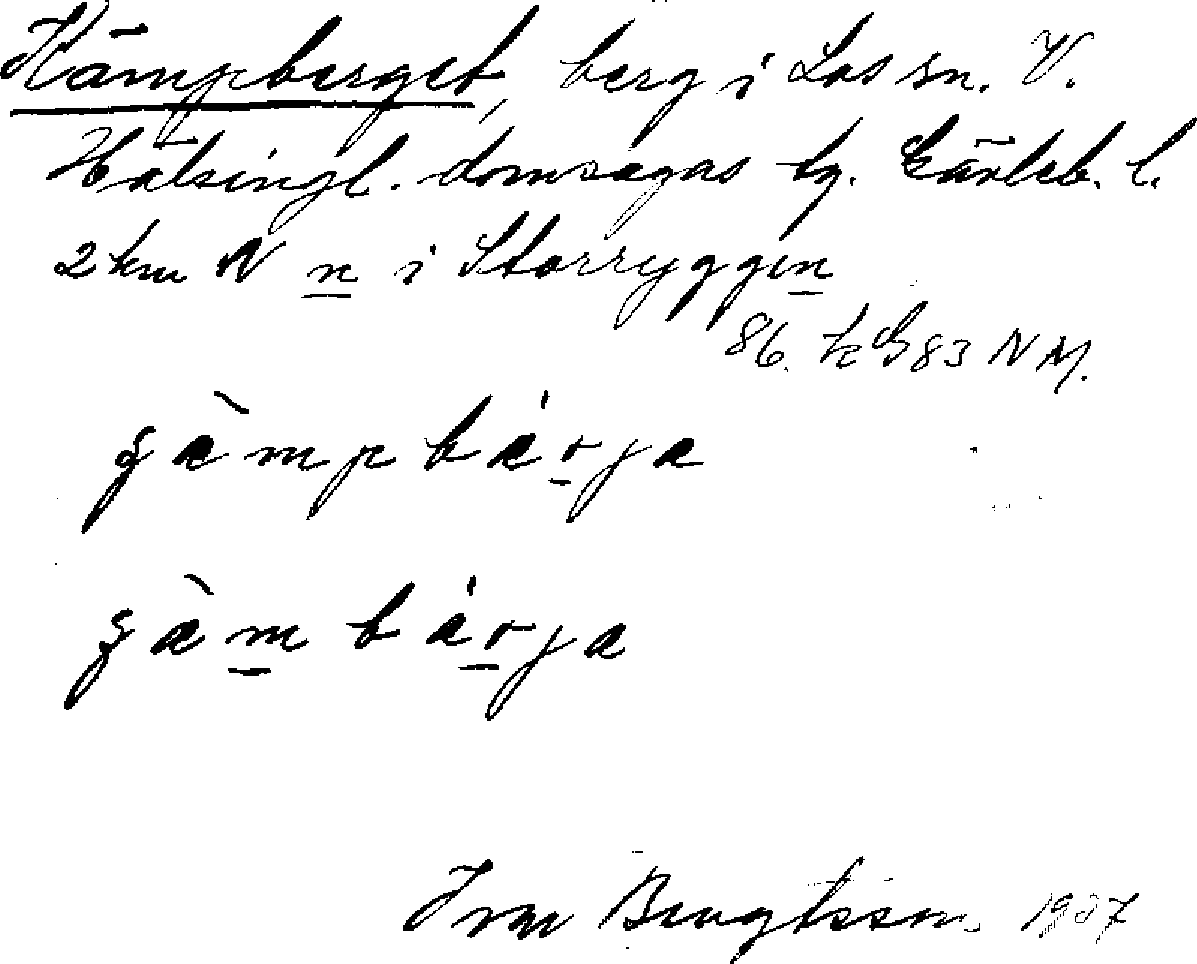 Kämpberget, berg i Los sn. V.
Hälsingl. domsagas tg. Gävleb. l.
2 km N n i Storryggen
86. k G 83 N M.
ʂæ̀mpbǽrja
ʂæ̀mbǽrja
Ivar Bengtsson 1937